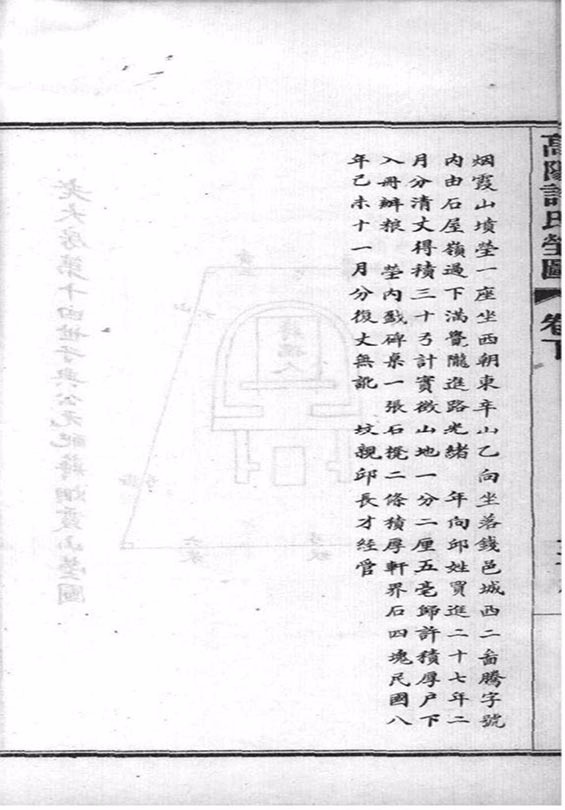 高陽許氏塋圖 卷下
烟霞山墳塋一座坐西朝東辛山乙向坐落錢邑城西二畬騰字號
內由石屋嶺過下滿覺隴進路光緒 年向邱姓買進二十七年二
月分清丈得積三十弓計實徵山地一分二厘五毫歸許積厚戶下
入冊辦粮 塋內戤碑桌一張石櫈二條積厚軒界石四塊民國八
年己未十一月分復丈無訛 坟親邱長才經管